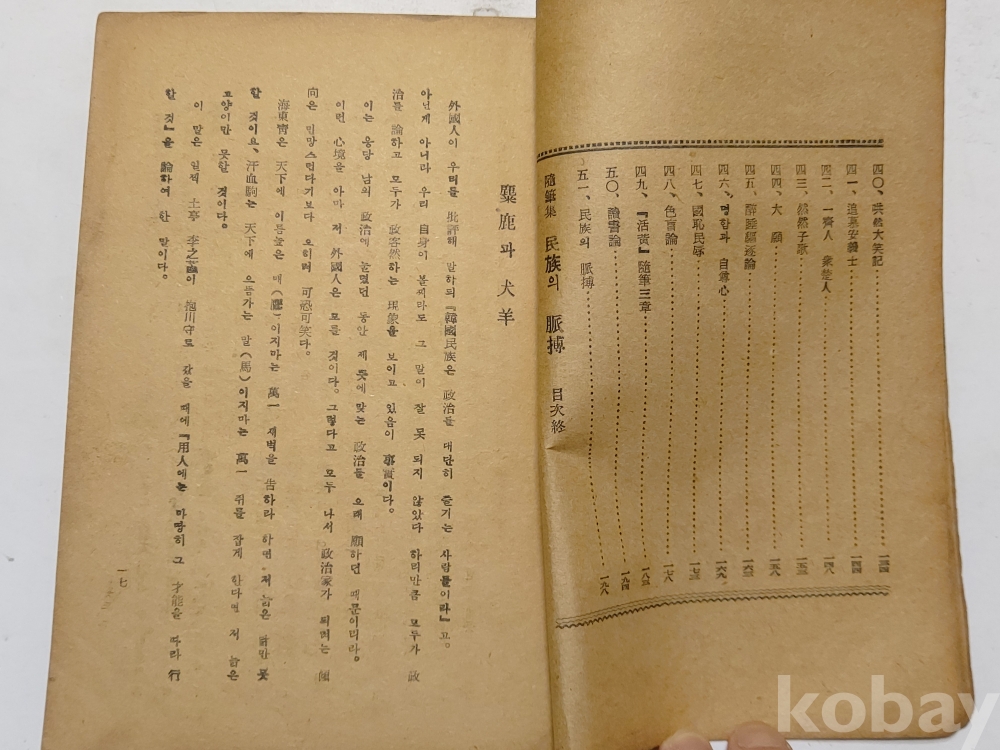 四〇、哄然大笑記 一三四
四一、追慕安義士 一四四
四二、一齊人 衆楚人 一四八
四三、然然子歌 一五三
四四、大願 一五八
四五、醉睡編逐論 一六三
四六、명함과 自尊心 一六九
四七、國恥民辱 一七三
四八、色盲論 一七八
四九、『活黃』隨筆三章 一八三
五〇、讀書論 一九四
五一、民族의 脈搏 一九八
隨筆集 民族의 脈搏 目次終
麋鹿과 犬羊
外國人이 우리를 批評해 말하되『韓國民族은 政治를 대단히 즐기는 사람들이라』고。
아닌게 아니라 우리 自身이 볼찌라도 그 말이 잘 못 되지 않았다 하리만큼 모두가 政
治를 論하고 모두가 政客然하는 現象을 보이고 있음이 事實이다。
이는 응당 남의 政治에 눌렸던 동안 제 뜻에 맞는 政治를 오래 願하던 때문이리라。
이런 心境을 아마 저 外國人은 모를 것이다。그렇다고 모두 나서 政治家가 되려는 傾
向은 민망스런다기보다 오히려 可恐可笑다。
海東靑은 天下에 이름높은 매(鷹)이지마는 萬一 새벽을 告하라 하면 저 늙은 닭만 못
할 것이요、汗血駒는 天下에 으뜸가는 말(馬)이지마는 萬一 쥐를 잡게 한다면 저 늙은
고양이만 못할 것이다。
이 말은 일찍 土亭 李之菡이 抱川守로 갔을 때에『用人에는 마땅히 그 才能을 따라 行
할 것』을 論하여 한 말이다。
一七
kobay